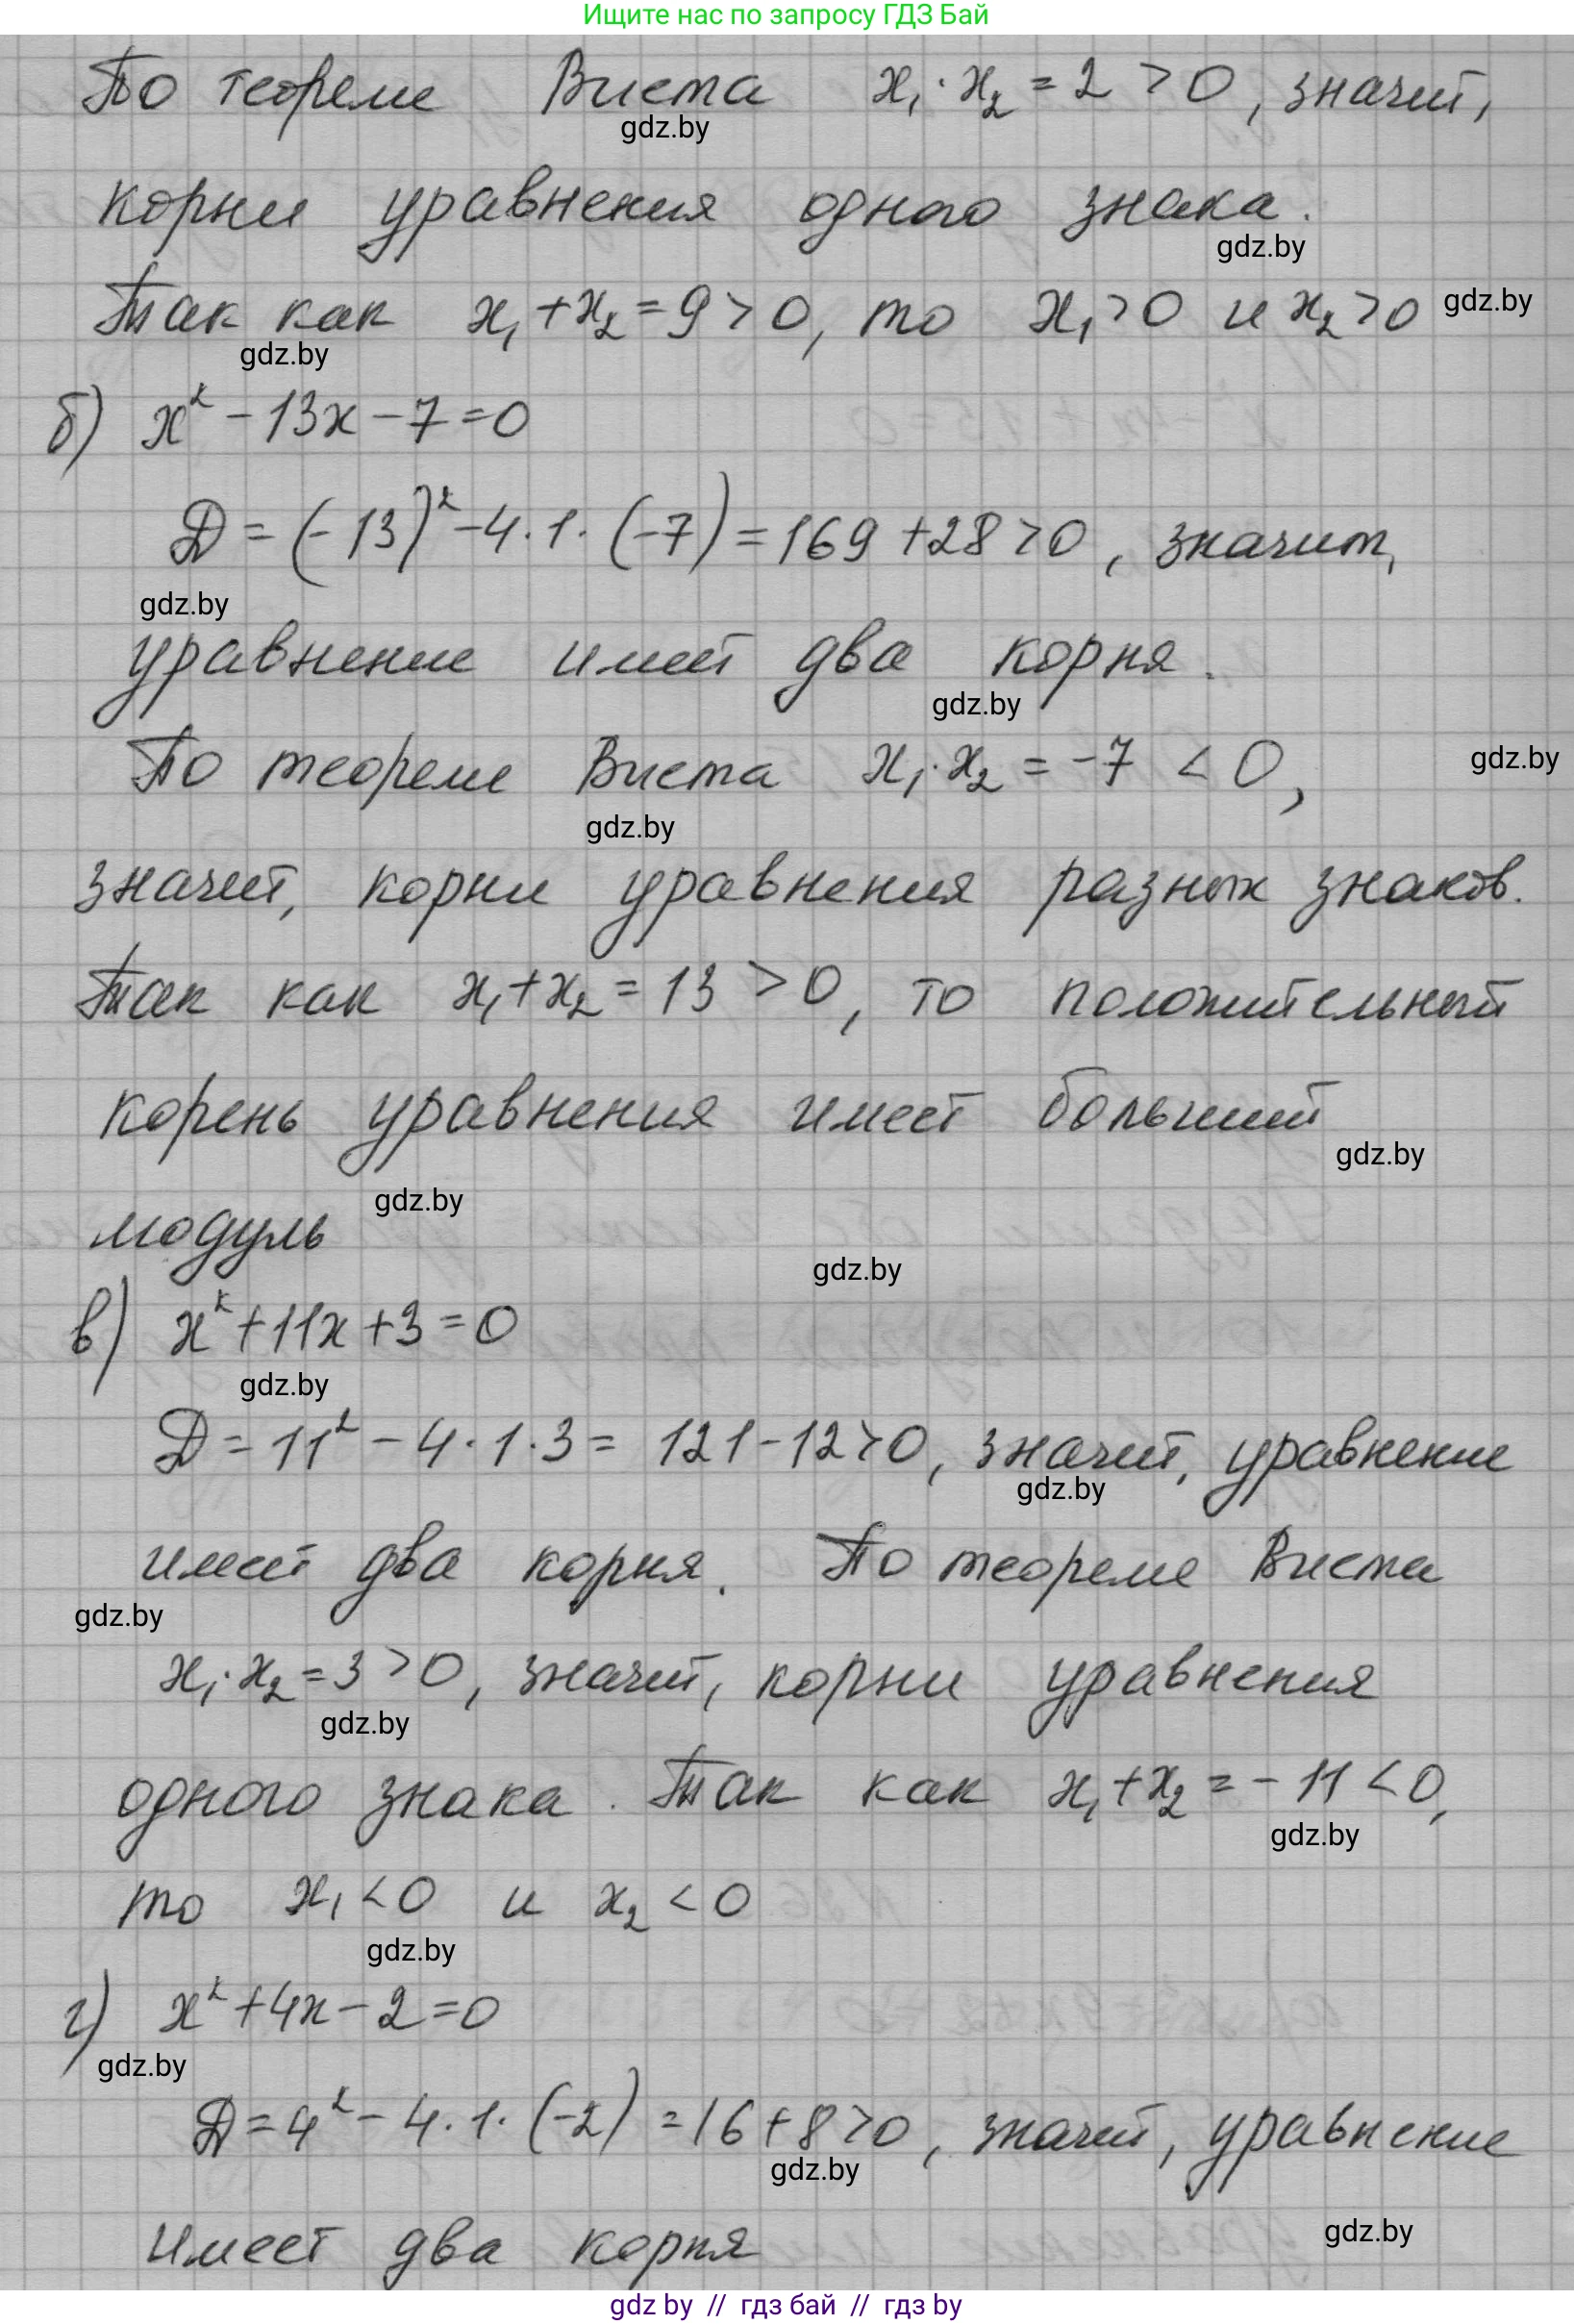 Ищите нас по запросу ГДЗ Бай
По теореме Виета x₁·x₂ = 2 > 0, значит,
gdz.by
корни уравнения одного знака.
gdz.by
Так как x₁+x₂ = 9 > 0, то x₁>0 и x₂>0 gdz.by
gdz.by
б) x² - 13x - 7 = 0
Д = (-13)² - 4·1·(-7) = 169 + 28 > 0, значит,
gdz.by
уравнение имеет два корня.
gdz.by
По теореме Виета x₁·x₂ = -7 < 0, gdz.by
gdz.by
значит, корни уравнения разных знаков.
Так как x₁+x₂ = 13 > 0, то положительный
корень уравнения имеет больший
gdz.by
модуль gdz.by
gdz.by
в) x² + 11x + 3 = 0
gdz.by
Д = 11² - 4·1·3 = 121 - 12 > 0, значит, уравнение
gdz.by
имеет два корня. По теореме Виета
gdz.by
x₁·x₂ = 3 > 0, значит, корни уравнения
gdz.by
одного знака. Так как x₁+x₂ = - 11 < 0,
gdz.by
то x₁ < 0 и x₂ < 0
gdz.by
г) x² + 4x - 2 = 0
gdz.by
Д = 4² - 4·1·(-2) = 16 + 8 > 0, значит, уравнение
gdz.by
имеет два корня gdz.by
gdz by // гдз бай // гдз by